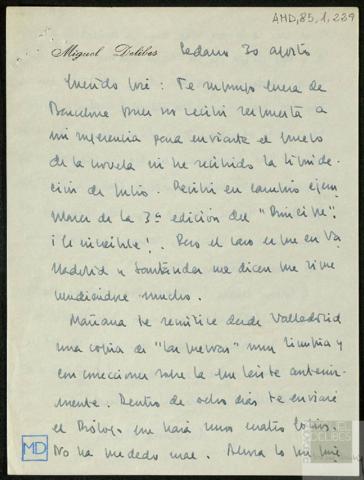 AMD,85,1,229
Miguel Delibes
Sedano 30 agosto
Querido José: Te supongo fuera de
Barcelona pues no recibí respuesta a
mi sugerencia para enviarte el
de la novela ni he recibido la liquida-
ción de Julio. Recibí en cambio ejem-
plares de la 3ª edición del "Príncipe".
¡Es increíble! Pero el caso es que en Va-
lladolid y Santander me dicen que sigue
vendiéndose mucho.
Mañana te remitiré desde Valladolid
una copia de "Las guerras" muy limpia y
con correcciones sobre la que leíste anterior-
mente. Dentro de ocho días te enviaré
el Prólogo que hará unos cuatro folios.
No ha quedado mal. Ahora lo que
MD